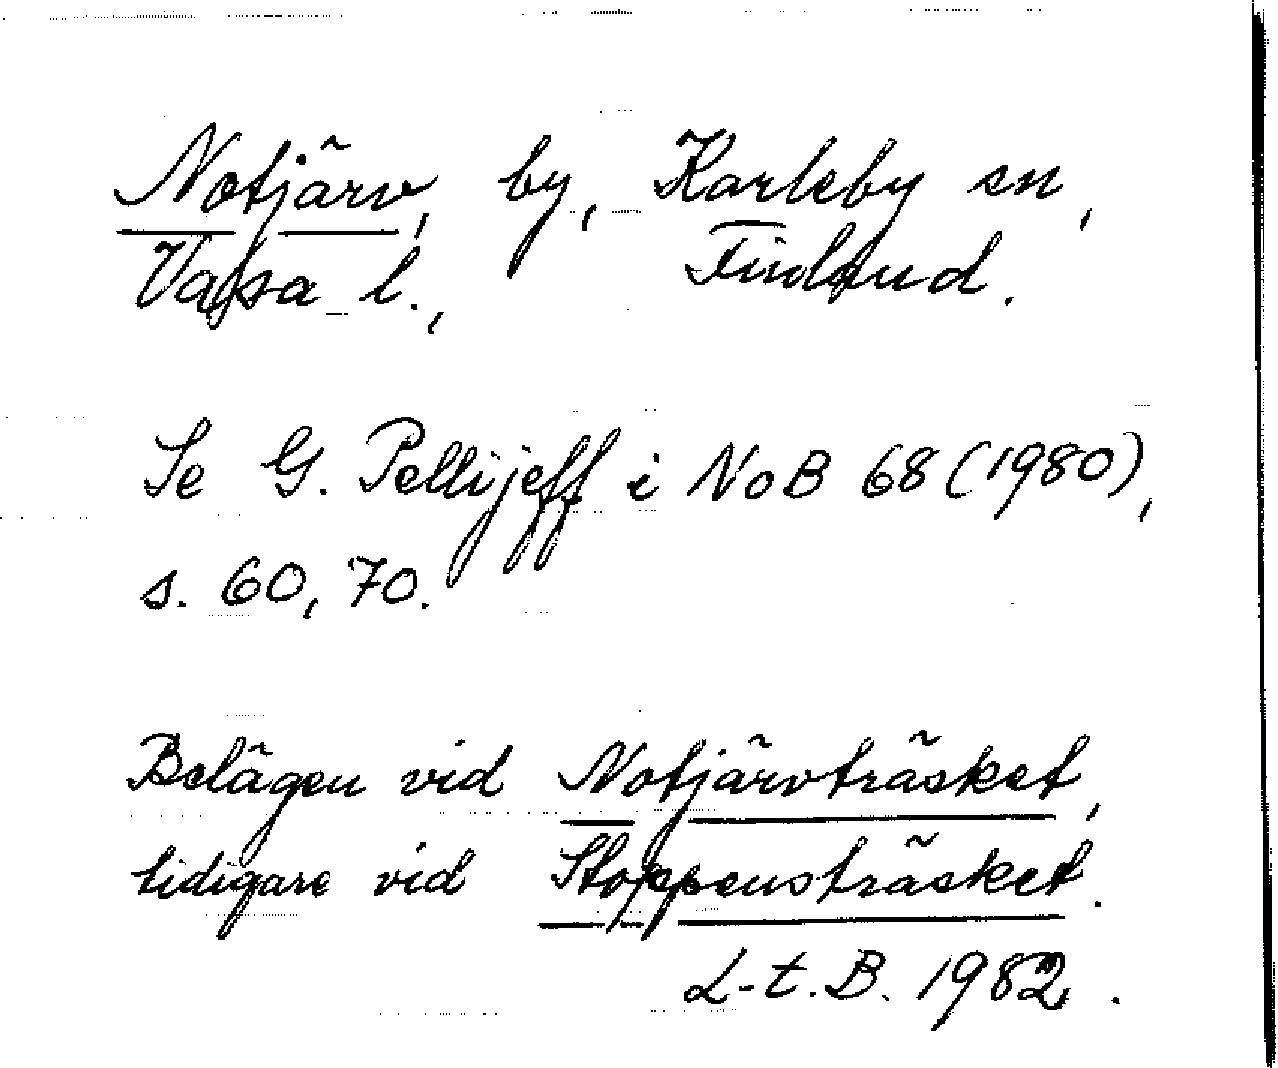 Notjärv, by, Karleby sn,
Vassa l., Finland.
Se G. Pellijeff i NoB 68 (1980),
s. 60, 70.
Belägen vid Notjärvträsket,
tidigare vid Stoppensträsket.
L-t. B. 1982.